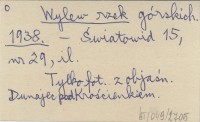 Wylew rzek górskich.
1938. – Światowid 15,
nr 29, il.
Tylko fot. z objaśn.
Dunajec pod Krościenkiem.